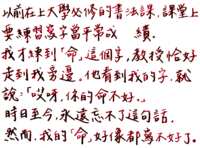 以前在上大學必修的書法課,課堂上
要練習寫字當平常成 績。
我才練到「命」這個字,教授恰好
走到我旁邊,他看到我的字,就
說:「哎呀,你的命不好。」
時日至今,永遠忘不了這句話。
然而,我的「命」好像都寫不好了。